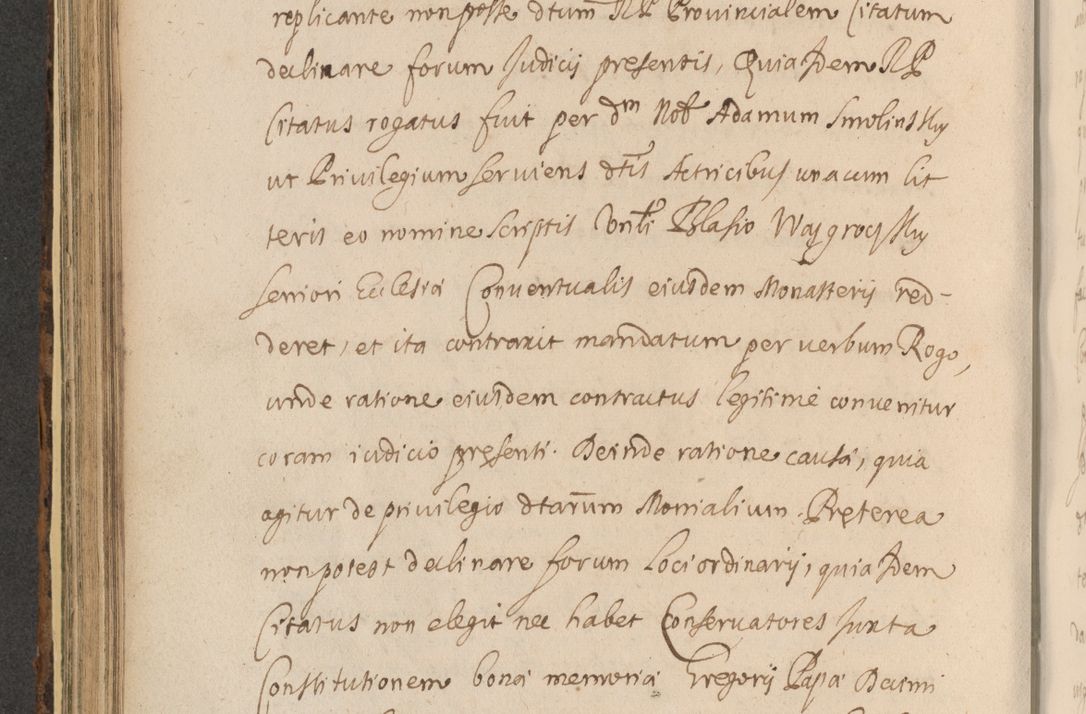 replicante non posse dtum RP Provincialem Citatum
declinare forum Judicij presentis, Quia Idem RP
Citatus rogatus fuit per dm Nob Adamum Smolinsky
ut Privilegium serviens dtis Actricibus una cum lit
teris eo nomine scriptis Vnli Blasio Wojgrocsky
seniori Ecclesiæ Conventualis eiusdem Monasterij red-
deret, et ita contraxit mandatum per verbum Rogo,
unde ratione eiusdem contractus legitimè convenitur
coram iudicio presenti. Deinde ratione causæ, quia
agitur de privilegio dtarum Monialium. Pręterea
non potest declinare forum Loci ordinarij, quia Idem
Citatus non elegit nec habet Conseruatores Juxta
Constitutionem bonæ memoriæ Gregorij Papæ Decimi